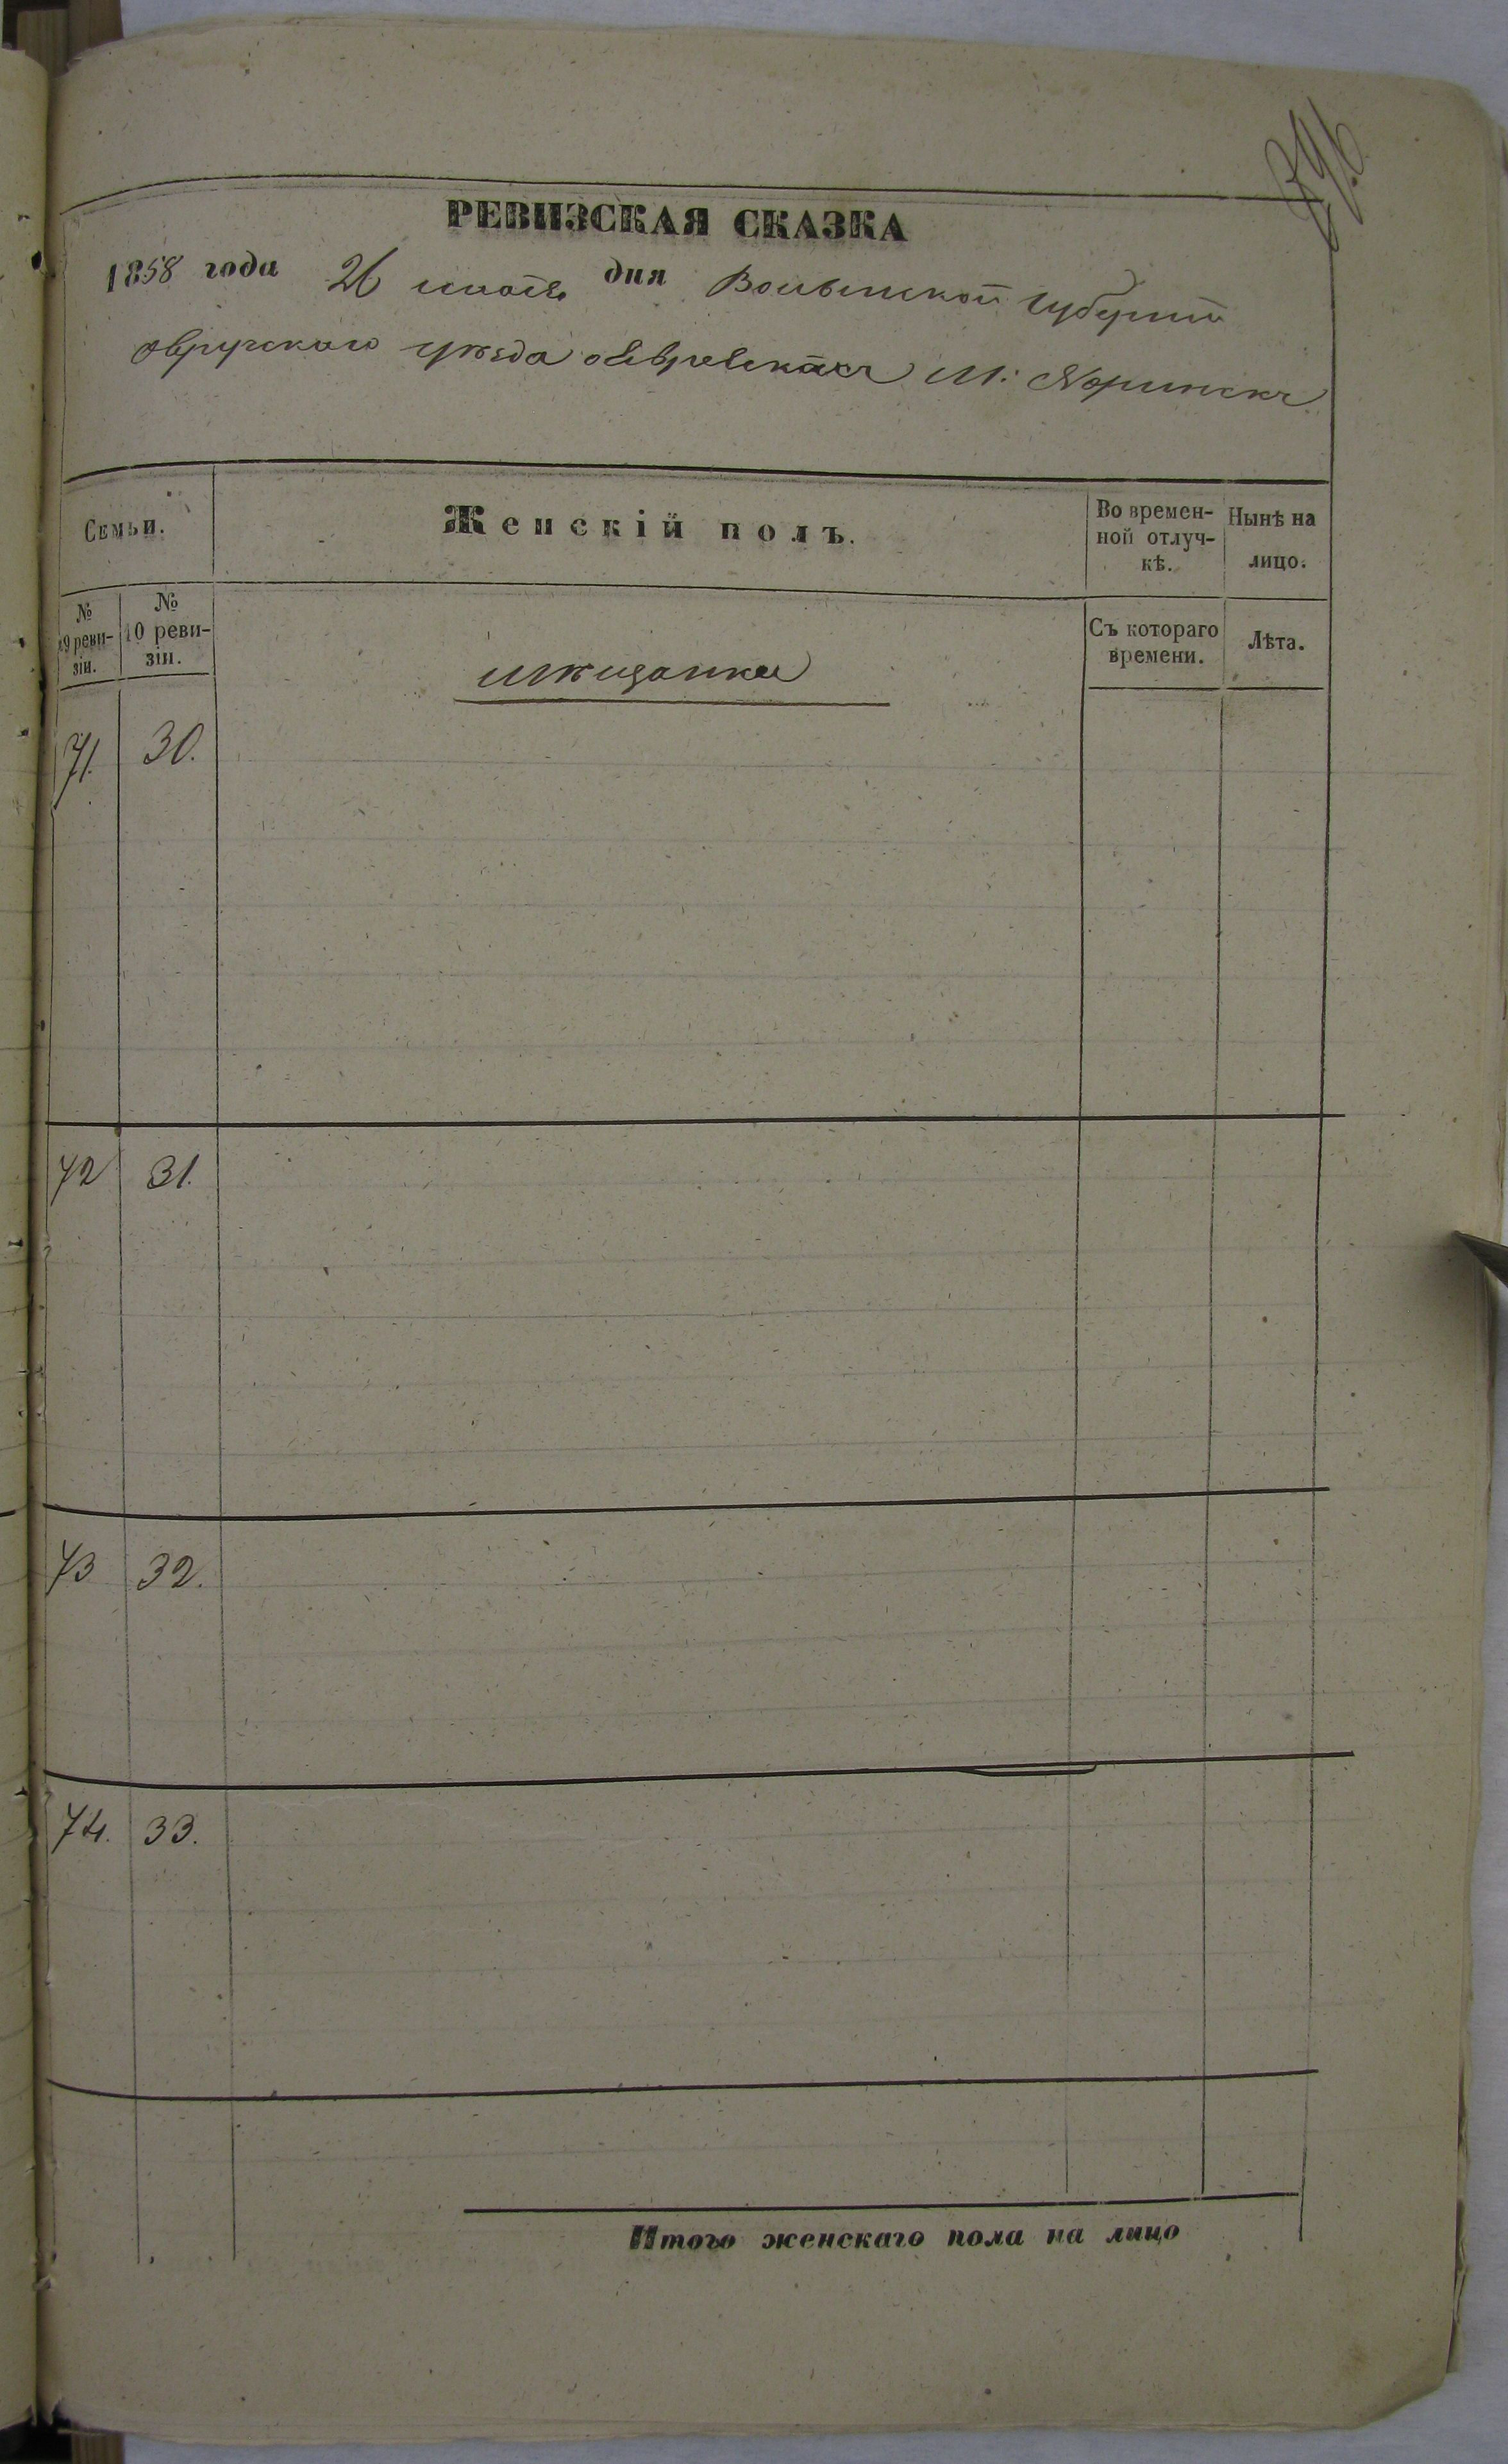 396
РЕВИЗСКАЯ СКАЗКА
1858 года 26 дня Волынской губернии
Овручского уѣзда о Евреяхъ М: Норинскъ
Семьи.
Женскій полъ.
Во времен-
ной отлуч-
кѣ.
Нынѣ на
лицо.
№
9 реви-
зіи.
№
10 реви-
зіи.
Съ котораго
времени.
Лѣта.
мѣщанки
71. 30.
72 31.
73 32.
74. 33.
Итого женскаго пола на лицо